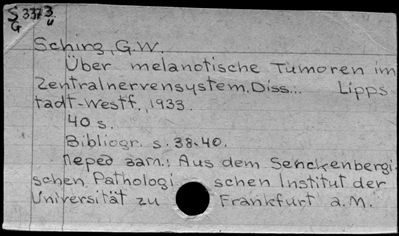 S 3373
G u
Schirz, G.W.
Über melanotische Tumoren im
Zentralnervensystem. Diss... Lipps
tadt-Westf., 1933.
40 s.
Bibliogr. s. 38-40.
Перед загл.: Aus dem Senckenbergi-
schen Pathologi schen Institut der
Universität zu Frankfurt a.M.